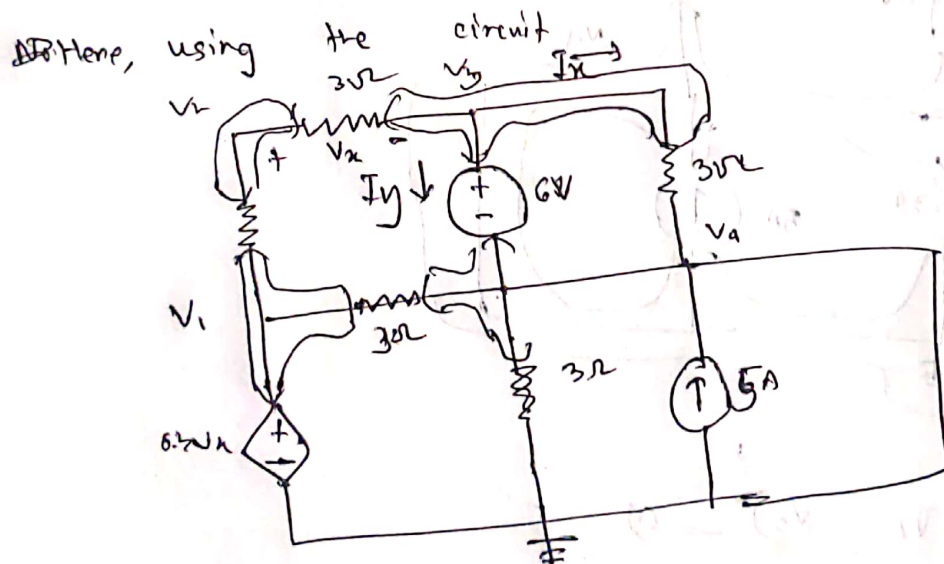 Here, using the circuit
3Ω V3 Ix
V2
+ Vx -
Iy + 6V 3Ω
-
V4
V1
3Ω
3Ω 5A
+
-